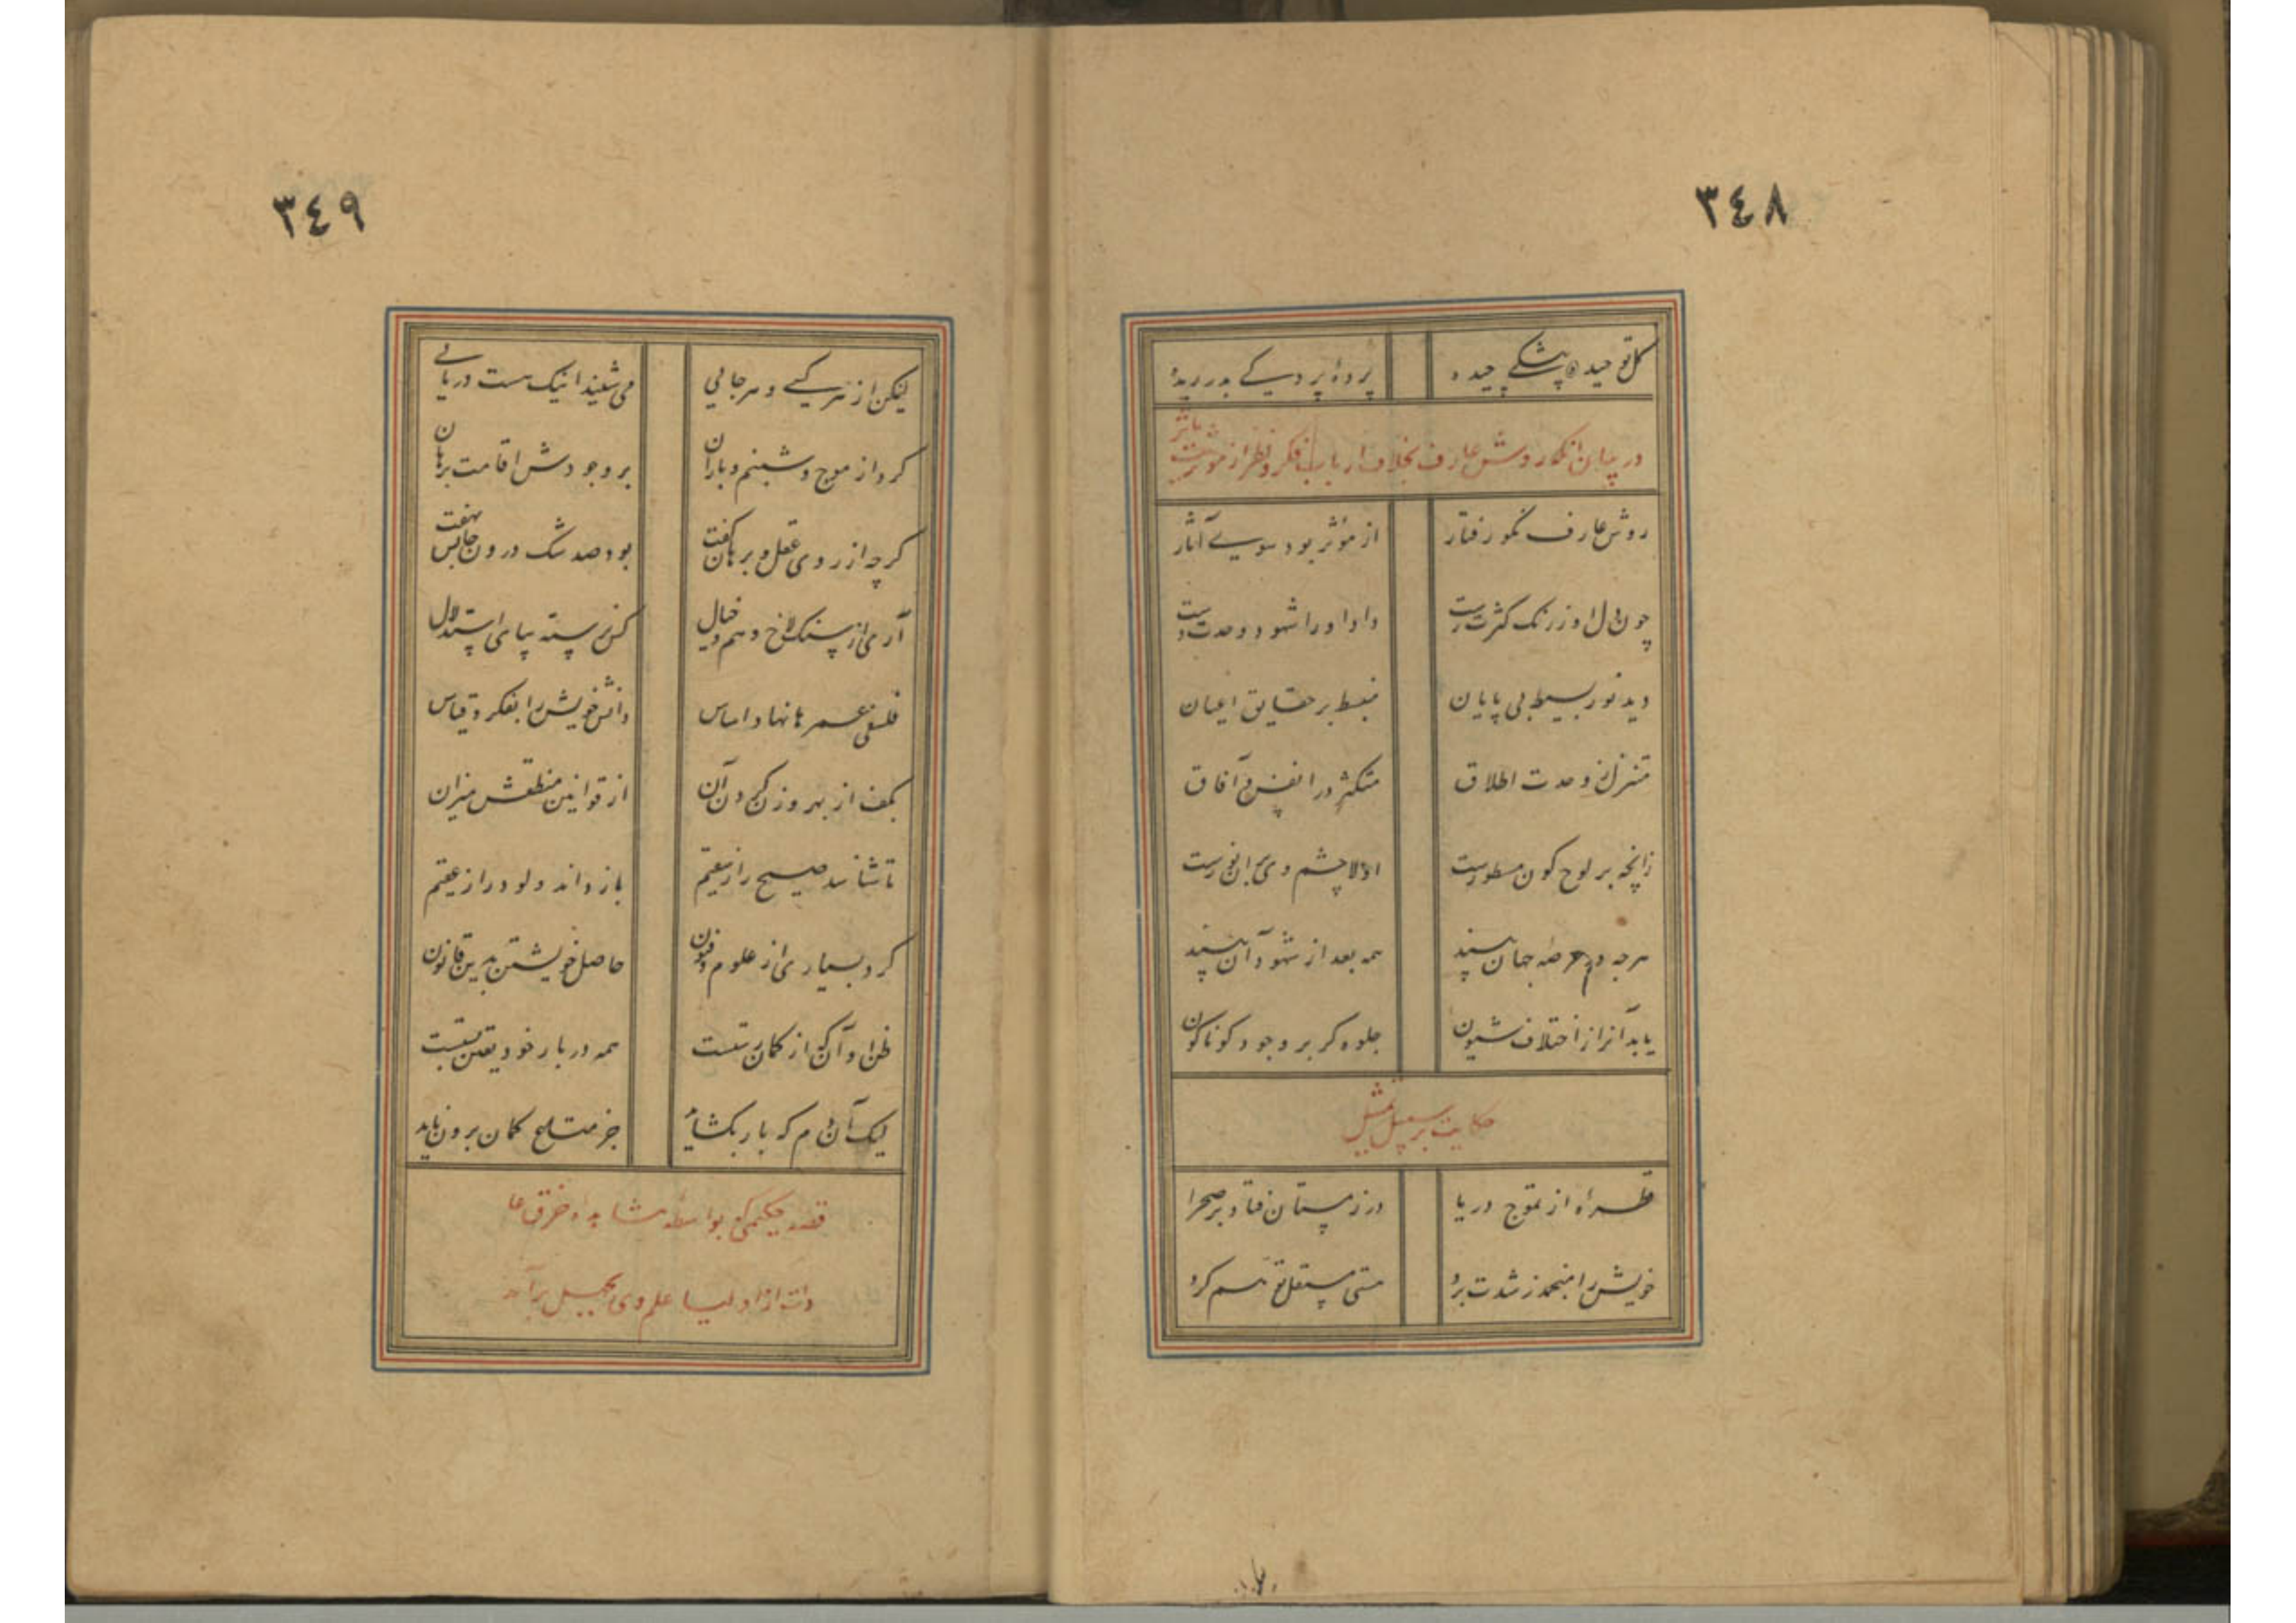 ٣٤٨
کل توحید پیشکی چیده
پردهٔ پردکی بدریده
در بیان آنکه روش عارف بخلاف ارباب فکر و نظر از مؤثرست باثر
روش عارف نکو رفتار
از مؤثر بود سوی آثار
چون دل او ز رنک کثرت رست
داد او را شهود وحدت دست
دید نور بسیط بی پایان
منبسط بر حقایق اعیان
متنزل ز وحدت اطلاق
متکثر در انفس و آفاق
زانچه بر لوح کون مسطورست
اولا چشم وی بر آن نورست
هرچه در عرصه جهان بیند
همه بعد از شهود آن بیند
یابد آنرا ز اختلاف شیون
جلوه کر بر وجود کوناکون
حکایت بر سبیل تمثیل
قطره‌ای از تموج دریا
در زمستان فتاد بر صحرا
خویش را منجمد ز شدت برد
هستی مستقل توهم کرد
٣٤٩
لیکن از هر کسی و هر جایی
می شنید اینک هست دریایی
کرد از موج و شبنم و باران
بر وجودش اقامت برهان
کرچه از روی عقل و برهان کفت
بود صد شک درون جانش نهفت
آری از سنکلاخ وهم و خیال
کس نرسته بپای استدلال
فلسفی عمرها نهاد اساس
دانش خویش را بفکر و قیاس
بکف از بهر وزن کردن آن
از قوانین منطقش میزان
تا شناسد صحیح را ز سقیم
باز داند ولود را ز عقیم
کرد بسیاری از علوم و فنون
حاصل خویشتن بدین قانون
ظن او آن که از کمان رستست
همه در بار خود یقین بستست
لیک آن دم که بار بکشاید
جز متاع کمان برون ناید
قصه حکیمی که بواسطه مشاهده خرق عا
دات از اولیا علم وی بجهل برآمد